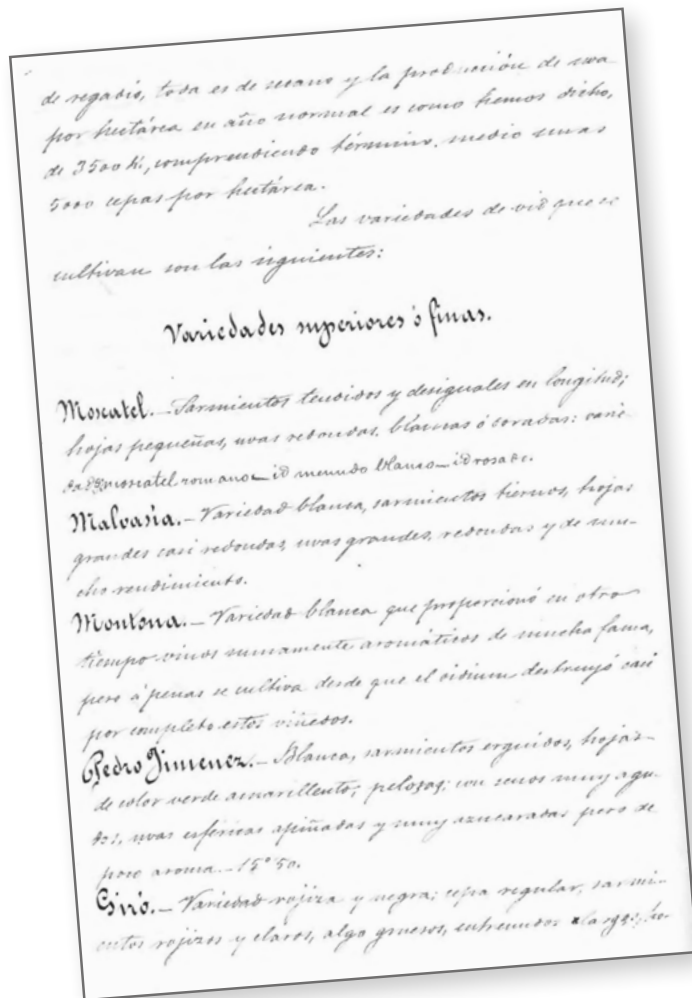 de regadío, toda es de secano y la producción de uva
por hectárea en año normal es como hemos dicho,
de 3500 k, comprendiendo término medio unas
5000 cepas por hectárea.
Las variedades de vid que se
cultivan son las siguientes:
Variedades superiores ó finas.
Moscatel.—Sarmientos tendidos y desiguales en longitud;
hojas pequeñas, uvas redondas, blancas ó doradas: varie-
moscatel romano—id menudo blanco—id rosado.
Malvasía.—Variedad blanca, sarmientos tiernos, hojas
grandes casi redondas, uvas grandes, redondas y de mu-
cho rendimiento.
Montona.—Variedad blanca que proporcionó en otro
tiempo vinos sumamente aromáticos de mucha fama,
pero á penas se cultiva desde que el oidium destruyó casi
por completo estos viñedos.
Pedro Jimenez.—Blanca, sarmientos erguidos, hojas
de color verde amarillento, pelosas; con senos muy agu-
dos, uvas esféricas apiñadas y muy azucaradas pero de
poco aroma.—15° 50.
Giró.—Variedad rojiza y negra; cepa regular, sarmi-
entos rojizos y claros, algo gruesos, entrenudos largos,